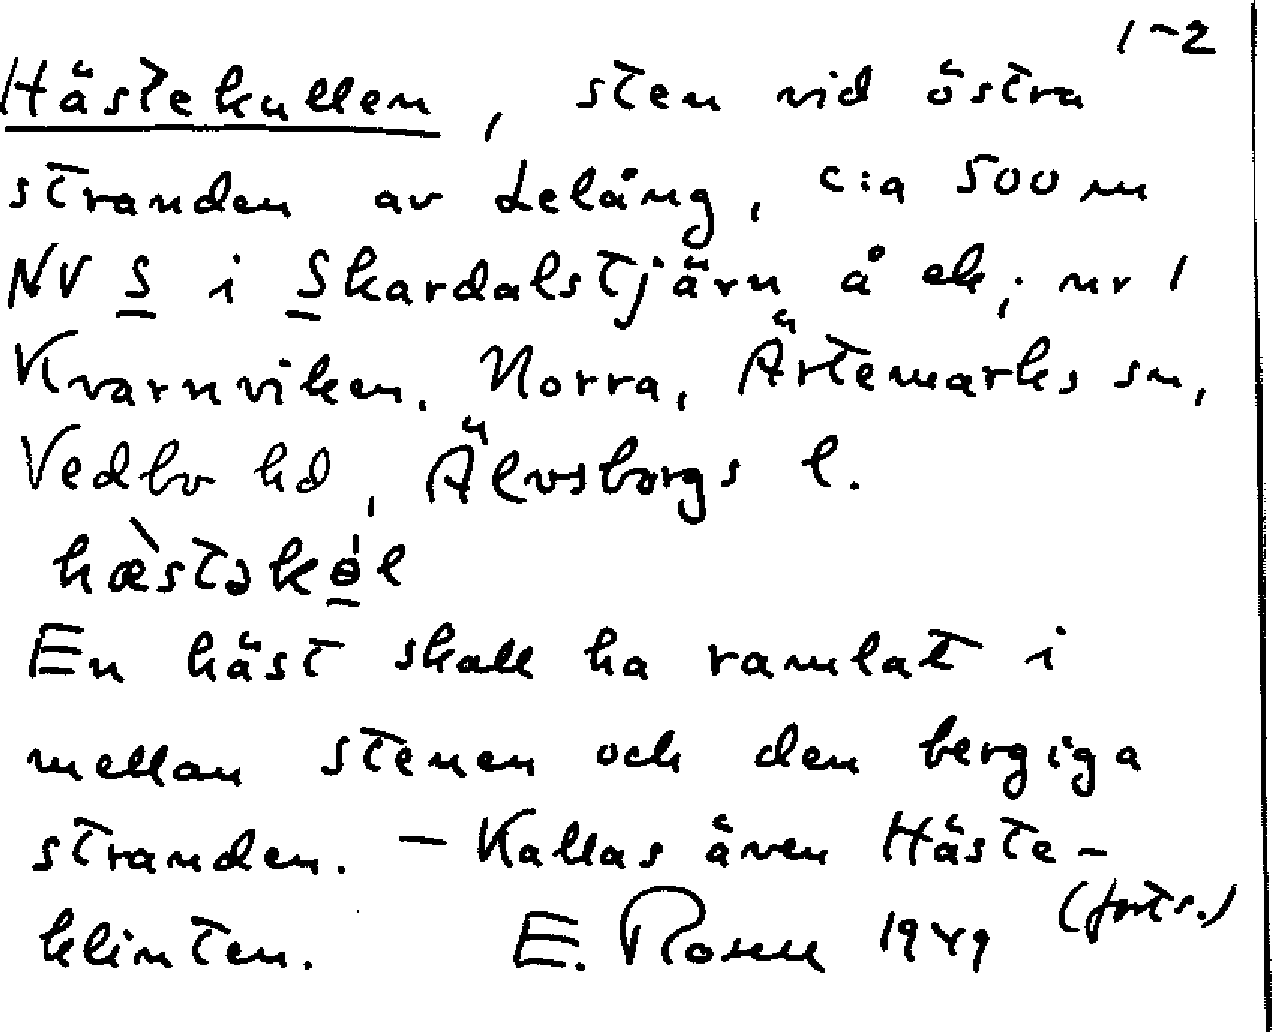 1-2
Hästekullen, sten vid östra
stranden av Lelång, c:a 500 m
NV S i Skardalstjärn å ek; nr 1
Kvarnviken. Norra, Ärtemarks sn,
Vedbo hd, Älvsborgs l.
hæ̀stəkɵ́l
En häst skall ha ramlat i
mellan stenen och den bergiga
stranden. – Kallas även Häste-
(forts.)
klinten. E. Rosell 1949